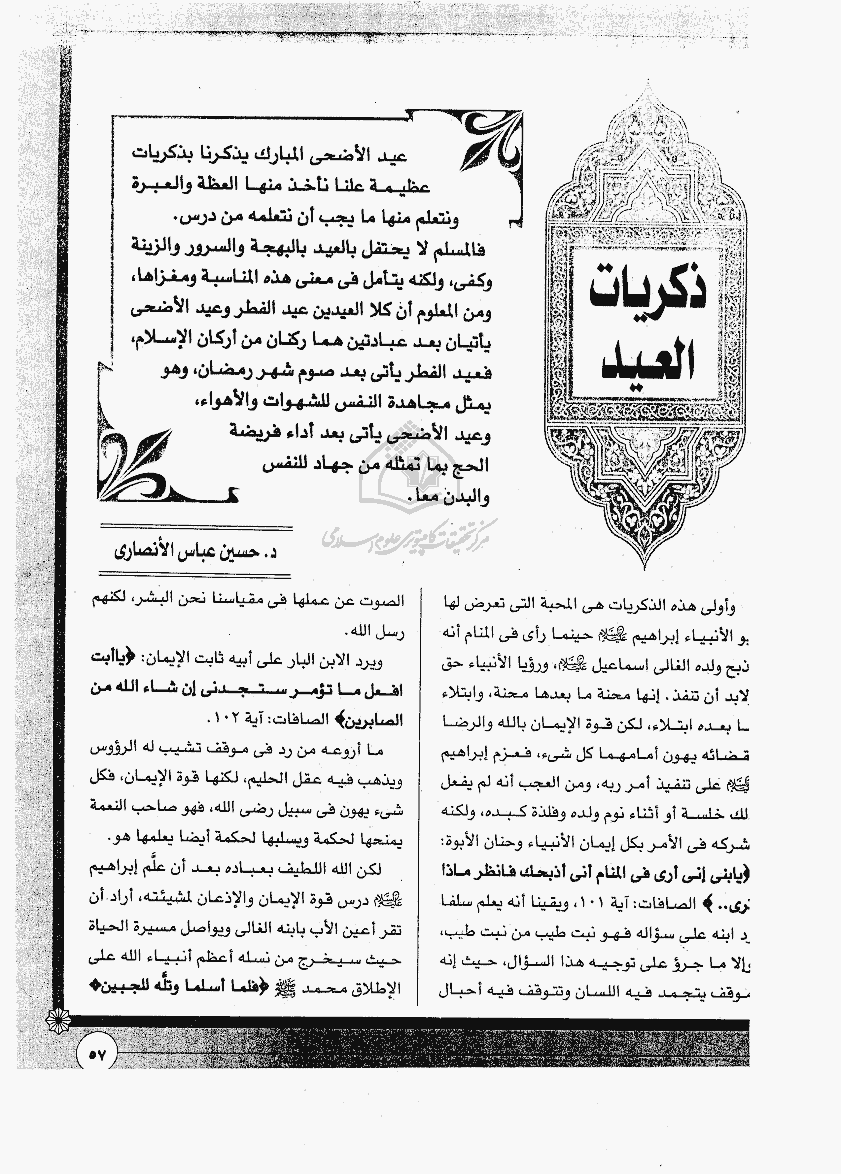 ذكريات
العيد
عيد الأضحى المبارك يذكرنا بذكريات
عظيمة علنا نأخذ منها العظة والعبرة
ونتعلم منها ما يجب أن نتعلمه من درس.
فالمسلم لا يحتفل بالعيد بالبهجة والسرور والزينة
وكفى، ولكنه يتأمل فى معنى هذه المناسبة ومغزاها،
ومن المعلوم أن كلا العيدين عيد الفطر وعيد الأضحى
يأتيان بعد عبادتين هما ركنان من أركان الإسلام،
فعيد الفطر يأتى بعد صوم شهر رمضان، وهو
يمثل مجاهدة النفس للشهوات والأهواء،
وعيد الأضحى يأتى بعد أداء فريضة
الحج بما تمثله من جهاد للنفس
والبدن معا.
مركز تحقيقات كامپيوترى علوم اسلامى
د. حسين عباس الأنصارى
وأولى هذه الذكريات هى المحبة التى تعرض لها
بو الأنبياء إبراهيم ﷺ حينما رأى فى المنام أنه
ذبح ولده الغالى اسماعيل ﷺ، ورؤيا الأنبياء حق
لابد أن تنفذ. إنها محنة ما بعدها محنة، وابتلاء
ـا بعده ابتلاء، لكن قوة الإيمان بالله والرضا
قضائه يهون أمامهما كل شىء، فعزم إبراهيم
ﷺ على تنفيذ أمر ربه، ومن العجب أنه لم يفعل
لك خلسة أو أثناء نوم ولده وفلذة كبده، ولكنه
شركه فى الأمر بكل إيمان الأنبياء وحنان الأبوة:
﴿يابنى إنى أرى فى المنام أنى أذبحك فانظر ماذا
ترى..﴾ الصافات: آية ١٠١، ويقينا أنه يعلم سلفا
رد ابنه على سؤاله فهو نبت طيب من نبت طيب،
وإلا ما جرؤ على توجيه هذا السؤال، حيث إنه
موقف يتجمد فيه اللسان وتتوقف فيه أحبال
الصوت عن عملها فى مقياسنا نحن البشر، لكنهم
رسل الله.
ويرد الابن البار على أبيه ثابت الإيمان: ﴿ياأبت
افعل ما تؤمر ستجدنى إن شاء الله من
الصابرين﴾ الصافات: آية ١٠٢.
ما أروعه من رد فى موقف تشيب له الرؤوس
ويذهب فيه عقل الحليم، لكنها قوة الإيمان، فكل
شىء يهون فى سبيل رضى الله، فهو صاحب النعمة
يمنحها لحكمة ويسلبها لحكمة أيضا يعلمها هو.
لكن الله اللطيف بعباده بعد أن علَّم إبراهيم
ﷺ درس قوة الإيمان والإذعان لمشيئته، أراد أن
تقر أعين الأب بابنه الغالى ويواصل مسيرة الحياة
حيث سيخرج من نسله أعظم أنبياء الله على
الإطلاق محمد ﷺ ﴿فلما أسلما وتلَّه للجبين﴾
٥٧